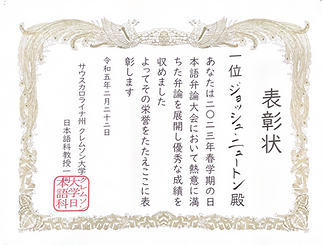 表彰状
一位 ジョッシュ・ニュートン殿
あなたは二〇二三年春学期の日
本語弁論大会において熱意に満
ちた弁論を展開し優秀な成績を
収めました
よってその栄誉をたたえここに表
彰します
令和五年二月二十二日
サウスカロライナ州 クレムソン大学
日本語科教授一同
クレムソン
大学日
本語科